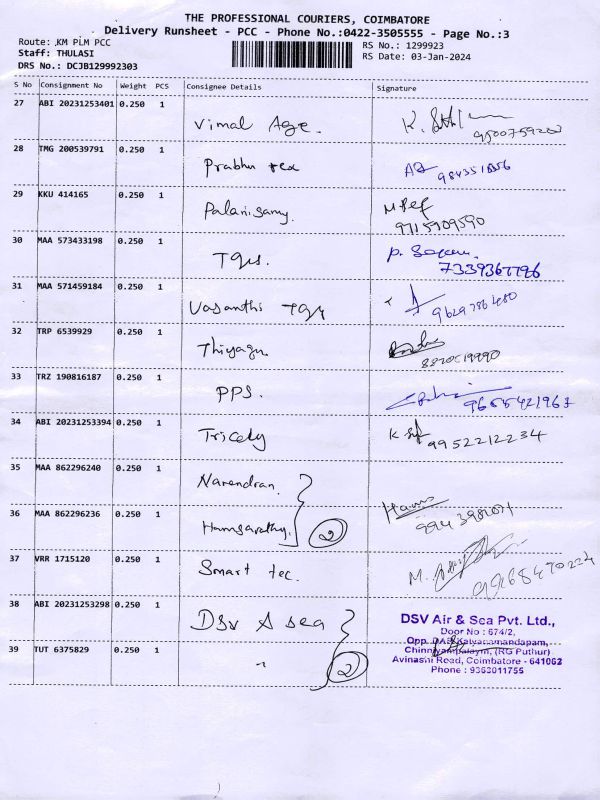 THE PROFESSIONAL COURIERS, COIMBATORE
Delivery Runsheet - PCC - Phone No.:0422-3505555 - Page No.:3
Route: KM PLM PCC
RS No.: 1299923
Staff: THULASI
RS Date: 03-Jan-2024
DRS No.: DCJB129992303
S No Consignment No Weight PCS Consignee Details Signature
27 ABI 20231253401 0.250 1 Vimal Age. K.
28 TMG 200539791 0.250 1 Prabhu tex
29 KKU 414165 0.250 1 Palanisamy.
9715909590
30 MAA 573433198 0.250 1 Tqrs. P.
7339367796
31 MAA 571459184 0.250 1 Vasanthi Tqrs 9629786480
32 TRP 6539929 0.250 1 Thiyagu
33 TRZ 190816187 0.250 1 PPS. 9655421967
34 ABI 20231253394 0.250 1 Tricety K 9952212234
35 MAA 862296240 0.250 1 Narendran.
36 MAA 862296236 0.250 1 Hamsarathy. 2
37 VRR 1715120 0.250 1 Smart tec. M.
38 ABI 20231253298 0.250 1 DSV A sea
DSV Air & Sea Pvt. Ltd.,
Door No : 674/2,
Opp. Kalyanamandapam,
39 TUT 6375829 0.250 1 " 2
(RG Puthur)
Avinashi Road, Coimbatore - 641062
Phone : 9363011755